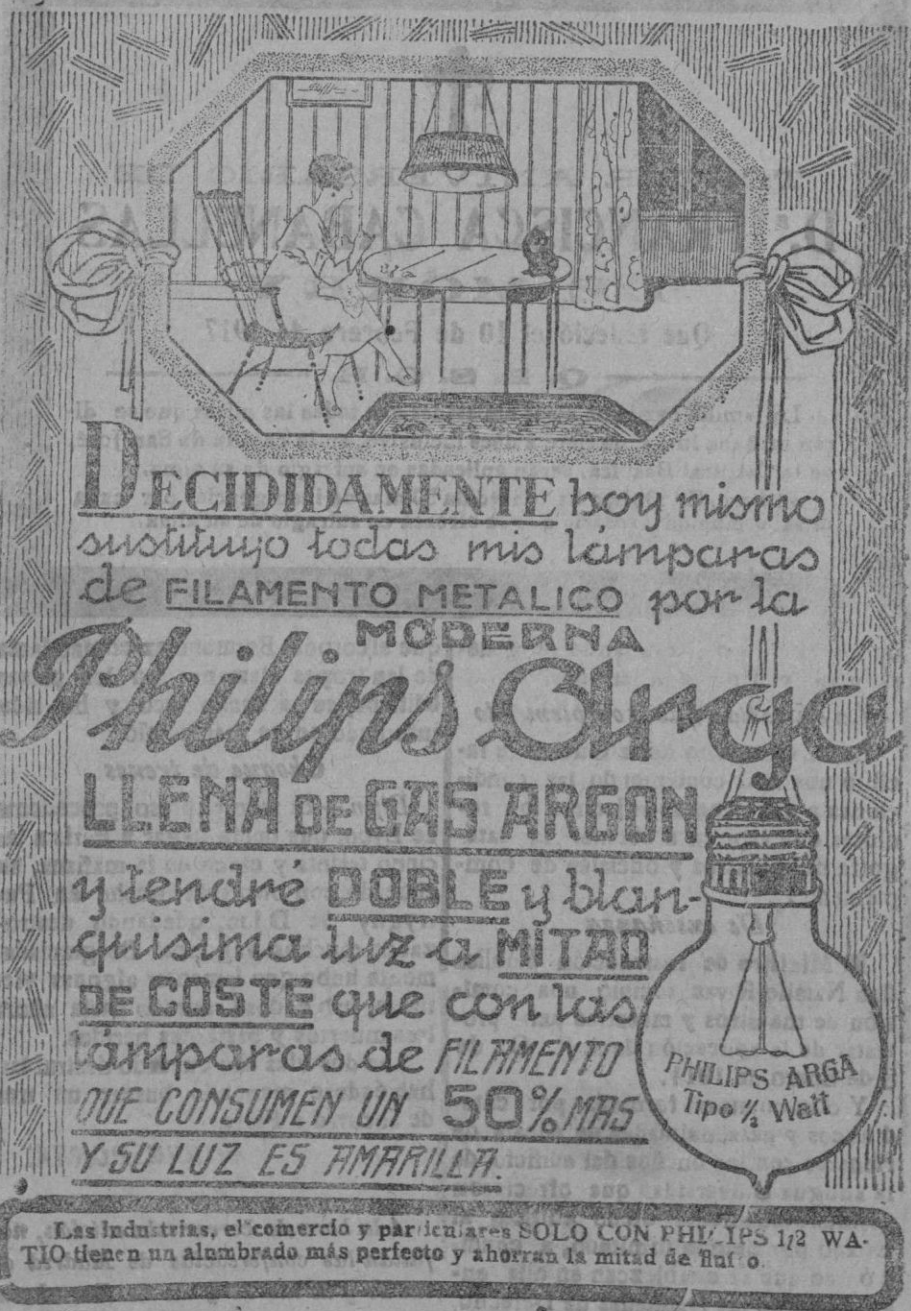 DECIDIDAMENTE hoy mismo
sustituyo todas mis lámparas
de FILAMENTO METALICO por la
MODERNA
Philips Arga
LLENA DE GAS ARGON
y tendré DOBLE y blan-
quisima luz a MITAD
DE COSTE que con las
lámparas de FILAMENTO
QUE CONSUMEN UN 50% MAS
Y SU LUZ ES AMARILLA.
PHILIPS ARGA
Tipo ½ Watt
Las Industrias, el comercio y particulares SOLO CON PHILIPS 1/2 WA-
TIO tienen un alumbrado más perfecto y ahorran la mitad de